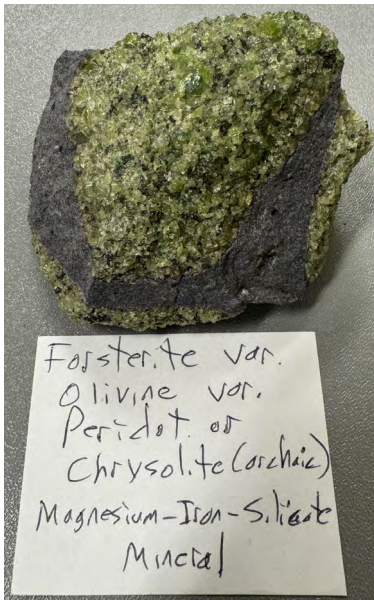 Forsterite var.
Olivine var.
Peridot or
Chrysolite (archaic)
Magnesium-Iron-Silicate
Mineral